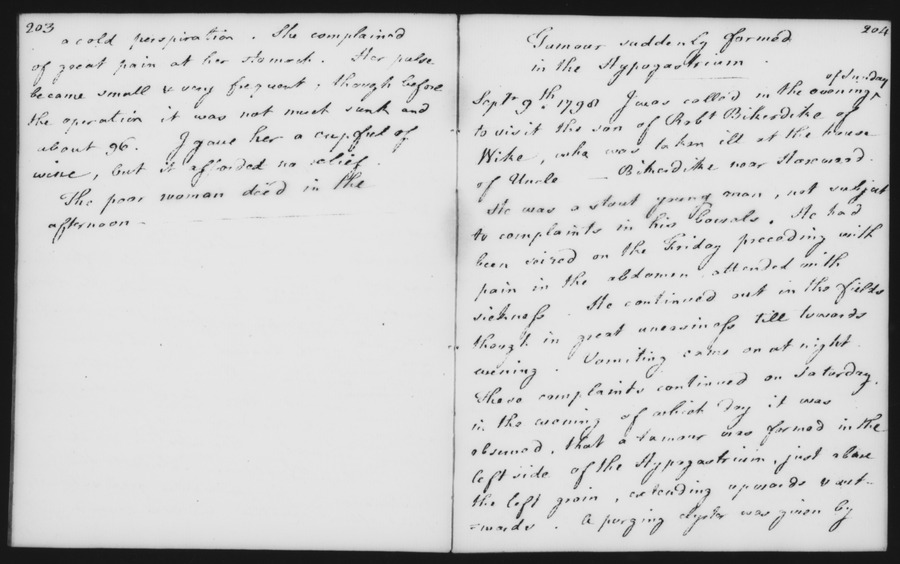 203
a cold perspiration. She complained
of great pain at her stomach. Her pulse
became small & very frequent, though before
the operation it was not much sunk and
about 96. I gave her a cupful of
wine, but it afforded no relief.
The poor woman died in the
afternoon —
204
Tumour suddenly formed
in the Hypogastrium.
of Sunday
Sepr. 9th. 1798 I was called in the evening ^
to visit the son of Robt Bikerdike of
Wike, who was taken ill at the house
of Uncle — Bikerdike near Harewood.
He was a stout young man, not subject
to complaints in his bowels. He had
been seized on the Friday preceding with
pain in the abdomen attended with
sickness. He continued out in the fields
though in great uneasiness till towards
evening. Vomiting came on at night.
These complaints continued on Saturday,
in the evening of which day it was
observed, that a tumour was formed in the
left side of the Hypogastrium, just above
the left groin, extending upwards & out-
=wards. A purging clyster was given by